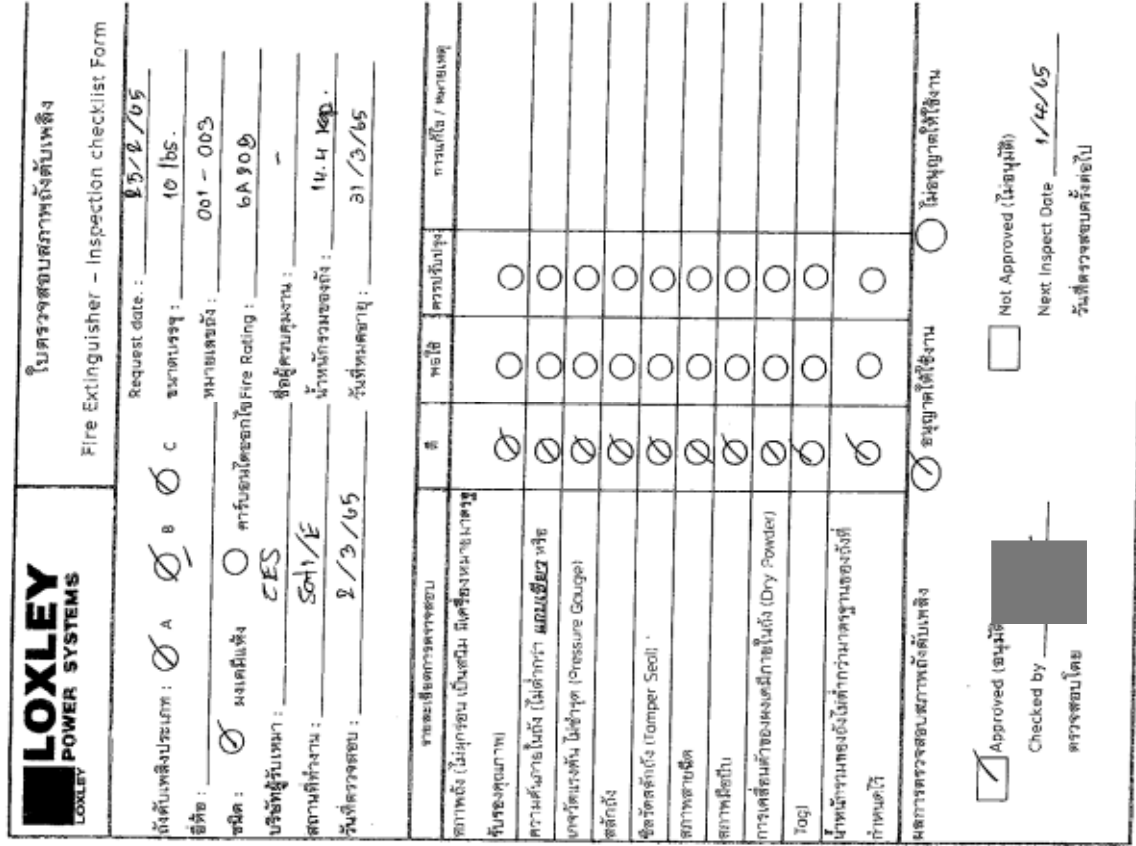 LOXLEY
POWER SYSTEMS
LOXLEY
ใบตรวจสอบสภาพถังดับเพลิง
Fire Extinguisher – Inspection checklist Form
ถังดับเพลิงประเภท : A B C
Request date. : 25/2/65
ยี่ห้อ :
ขนาดบรรจุ : 10 lbs.
หมายเลขถัง : 001 - 003
ชนิด : ผงเคมีแห้ง คาร์บอนไดออกไซ Fire Rating :
บริษัทผู้รับเหมา : CES
ชื่อผู้ควบคุมงาน : -
สถานที่ทำงาน :
น้ำหนักรวมของถัง : 14.4
วันที่ตรวจสอบ : 2/3/65
วันที่หมดอายุ : 31/3/65
รายละเอียดการตรวจสอบ ดี พอใช้ ควรปรับปรุง การแก้ไข / หมายเหตุ
สภาพถัง (ไม่ผุกร่อน เป็นสนิม มีเครื่องหมายมาตรฐ
รับรองคุณภาพ)
ความดันภายในถัง (ไม่ต่ำกว่า แถบเขียว หรือ
เกจวัดแรงดัน ไม่ชำรุด (Pressure Gauge)
สลักถัง
ซีลรัดสลักถัง (Tamper Seal)
สภาพสายฉีด
สภาพมือบีบ
การเคลื่อนตัวของผงเคมีภายในถัง (Dry Powder)
Tag)
น้ำหนักรวมของถังไม่ต่ำกว่ามาตรฐานของถังที่
กำหนดไว้
ผลการตรวจสอบสภาพถังดับเพลิง อนุญาตให้ใช้งาน ไม่อนุญาตให้ใช้งาน
Approved (อนุมัติ
Not Approved (ไม่อนุมัติ)
Checked by
Next Inspect Date 1/4/65
ตรวจสอบโดย
วันที่ตรวจสอบครั้งต่อไป